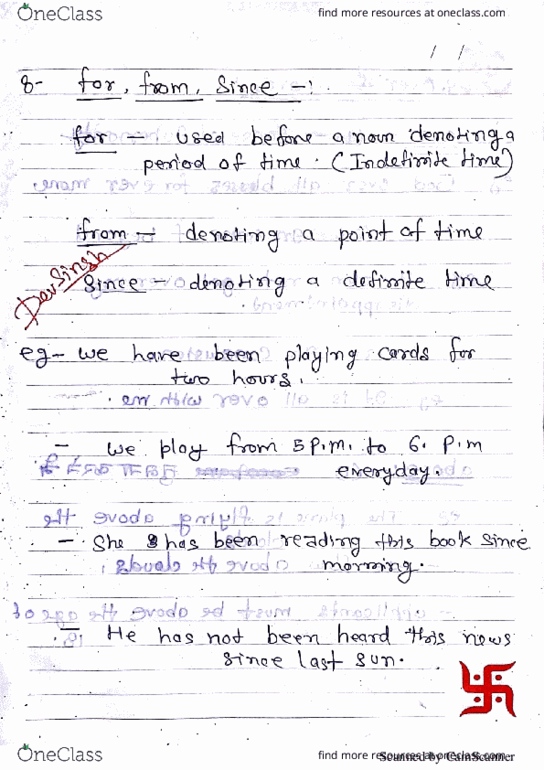 OneClass
find more resources at oneclass.com
/ /
8- for, from, Since -:
for - used before a noun denoting a
period of time. (Indefinite time)
from - denoting a point of time
Dev Singh
Since - denoting a definite time
eg- we have been playing cards for
two hours.
- we play from 5 P.m. to 6. p.m
everyday.
- She has been reading this book since
morning.
- He has not been heard this news
since last sun.
OneClass
find more resources at oneclass.com
Scanned by CamScanner